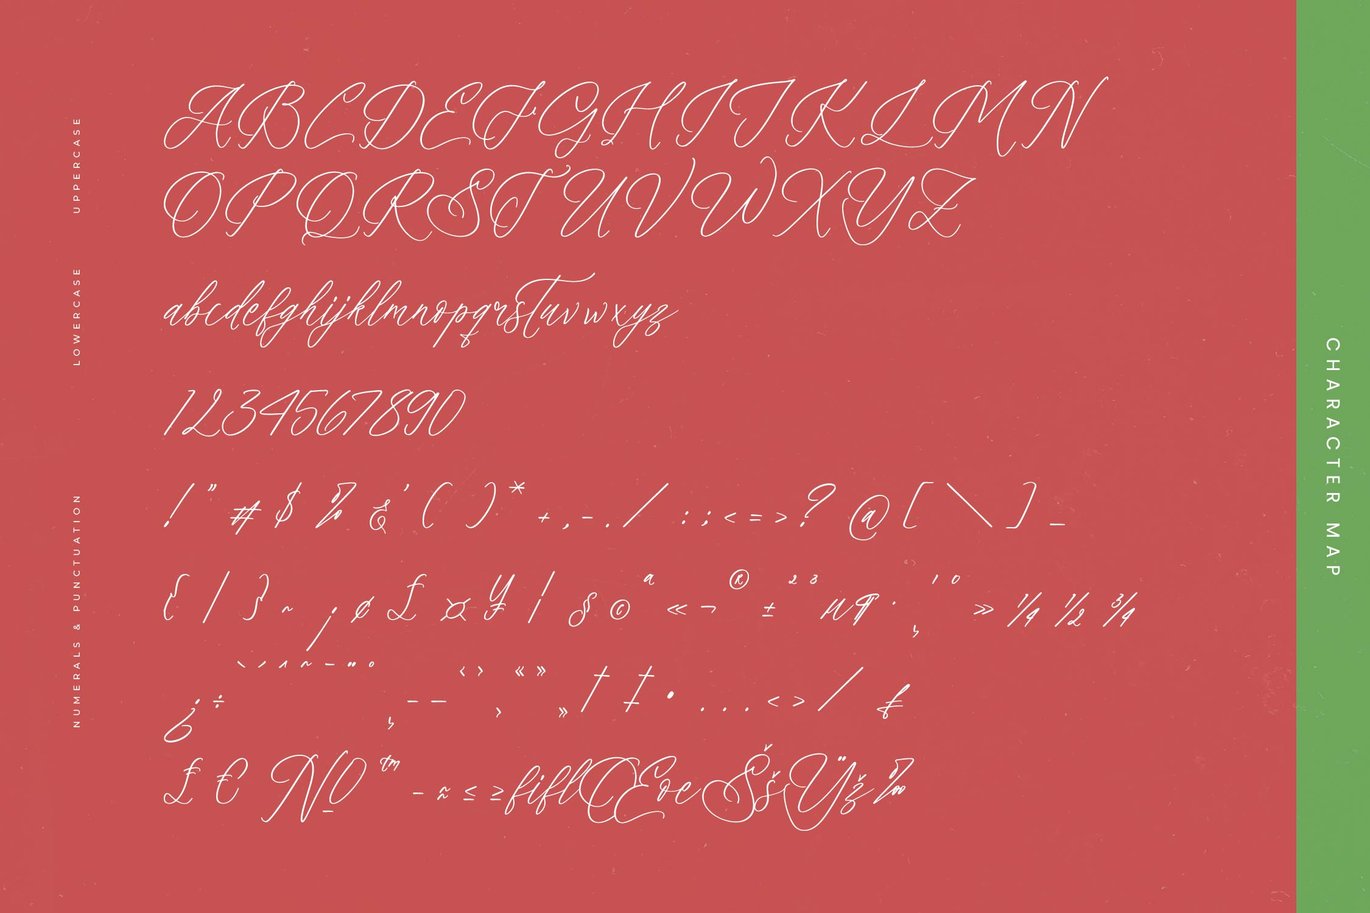 UPPERCASE
ABCDEFGHIJKLMN
OPQRSTUVWXYZ
LOWERCASE
abcdefghijklmnopqrstuvwxyz
1234567890
NUMERALS & PUNCTUATION
! " # $ % & ' ( ) * + , - . / : ; < = > ? @ [ \ ] _
{ | } ~ ¡ ¢ £ ¤ ¥ ¦ § © ª « ¬ ® ± ² ³ µ ¶ · ¸ ¹ º » ¼ ½ ¾
¿ ÷ ` ´ ^ ~ ¯ ¨ ° ¸ – — ‹ › « » † ‡ • . . . < > /
£ € № ™ − ≈ ≤ ≥ fi fl Œ œ Š š Ÿ ž ‰
CHARACTER MAP